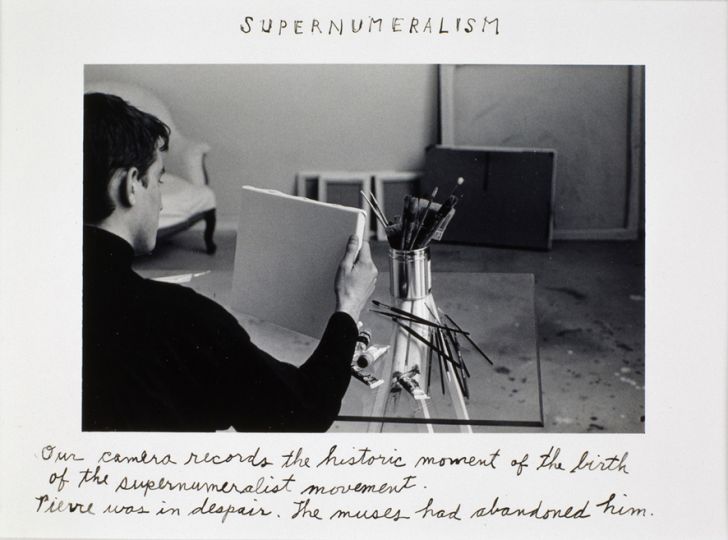 SUPERNUMERALISM
Our camera records the historic moment of the birth
of the supernumeralist movement.
Pierre was in despair. The muses had abandoned him.